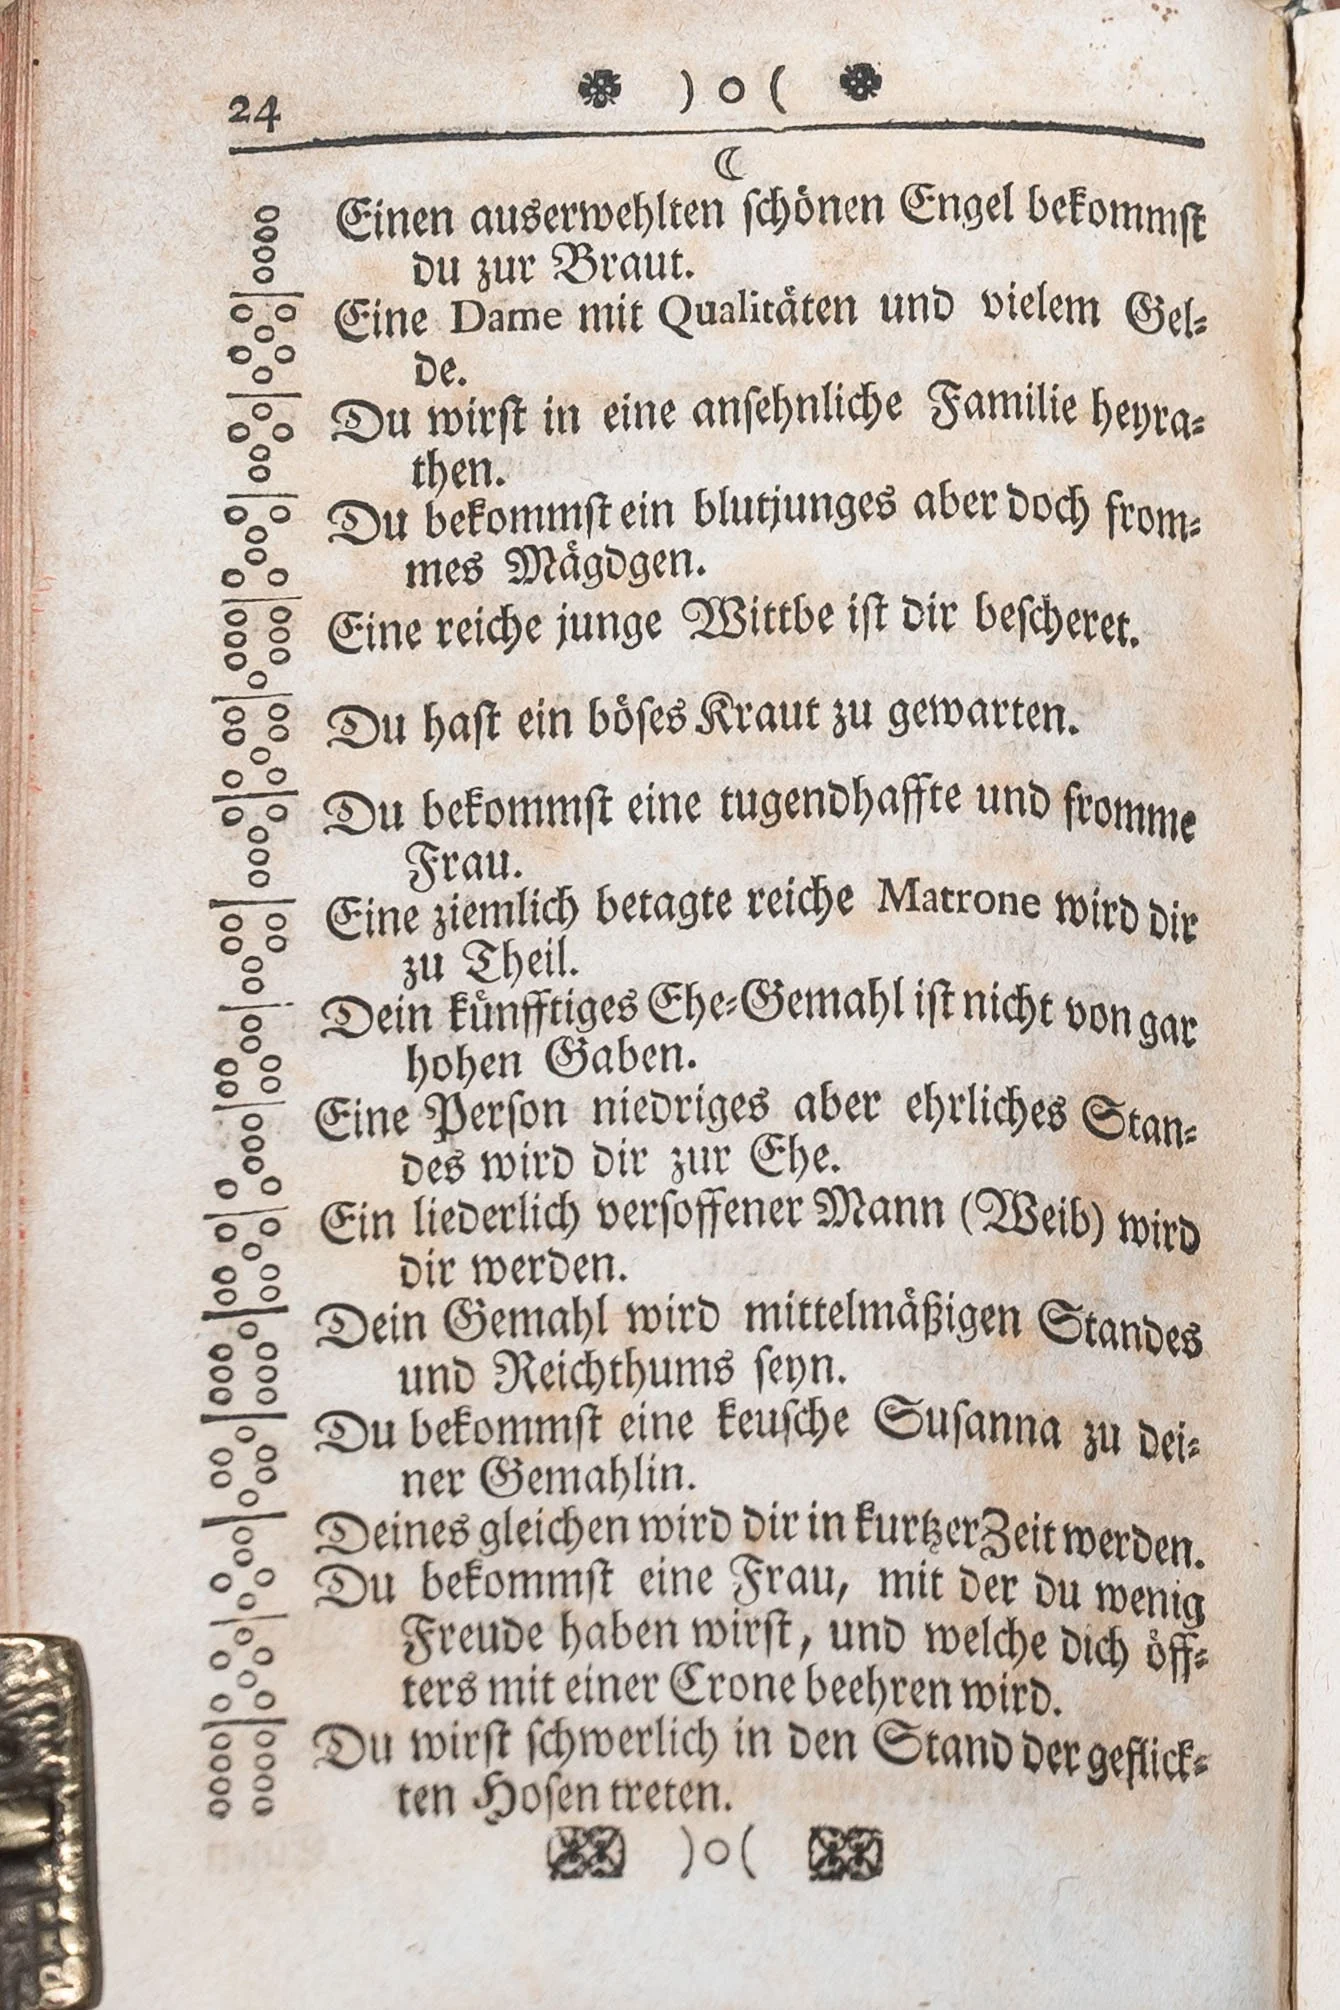 24 ) o (
☾
Einen auserwehlten schönen Engel bekommst
du zur Braut.
Eine Dame mit Qualitäten und vielem Gel-
de.
Du wirst in eine ansehnliche Familie heyra-
then.
Du bekommst ein blutjunges aber doch from-
mes Mägdgen.
Eine reiche junge Wittbe ist dir bescheret.
Du hast ein böses Kraut zu gewarten.
Du bekommst eine tugendhaffte und fromme
Frau.
Eine ziemlich betagte reiche Matrone wird dir
zu Theil.
Dein künfftiges Ehe-Gemahl ist nicht von gar
hohen Gaben.
Eine Person niedriges aber ehrliches Stan-
des wird dir zur Ehe.
Ein liederlich versoffener Mann (Weib) wird
dir werden.
Dein Gemahl wird mittelmäßigen Standes
und Reichthums seyn.
Du bekommst eine keusche Susanna zu dei-
ner Gemahlin.
Deines gleichen wird dir in kurtzer Zeit werden.
Du bekommst eine Frau, mit der du wenig
Freude haben wirst, und welche dich öff-
ters mit einer Crone beehren wird.
Du wirst schwerlich in den Stand der geflick-
ten Hosen treten.
) o (